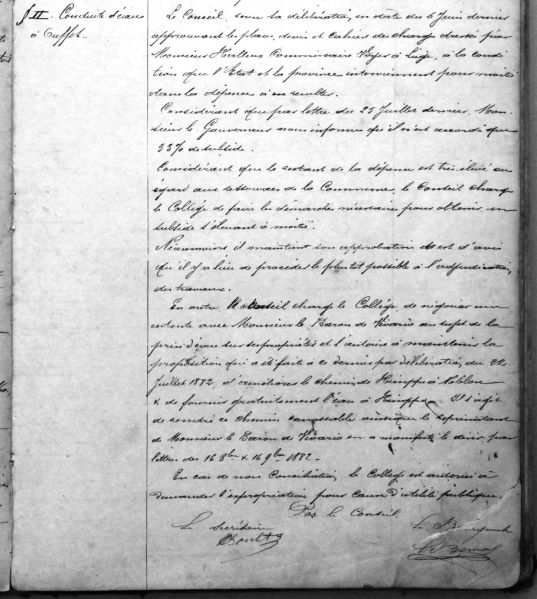 § II. Conduite d'eau
à Ouffet.
Le Conseil, revu la délibération, en date du 5 Juin dernier
approuvant le plan, devis et Cahier des charges dressés par
Monsieur Commissaire Voyer à Liège, à la condi
tion que l'Etat et la province interviennent pour moitié
dans la dépense à en résulter.
Considérant que par lettre du 25 Juillet dernier, Mon-
sieur le Gouverneur nous informe qu'il n'est accordé que
33% de subside.
Considérant que le restant de la dépense est très élevé eu
égard aux ressources de la Commune, le Conseil charge
le Collège de faire les démarches nécessaires pour obtenir un
subside s'élevant à moitié.
Néanmoins il maintient son approbation et est d'avis
qu'il y a lieu de procéder le plus tôt possible à l'adjudication
des travaux.
En outre le Conseil charge le Collège de négocier une
entente avec Monsieur le Baron de Vivario au sujet de la
prise d'eau sur sa propriété et l'autorise à maintenir la
proposition qui a été faite à ce dernier par délibération du 22
Juillet 1872, d'améliorer le chemin de Himppe à
& de fournir gratuitement l'eau à Himppe. Il s'agit
de rendre ce chemin carrossable ainsi que le représentant
de Monsieur le Baron de Vivario en a manifesté le désir par
lettres des 16 8bre & 16 9bre 1882.
En cas de non Conciliation, le Collège est autorisé à
demander l'expropriation pour cause d'utilité publique.
Par le Conseil
Le Secrétaire
Le Bourgmestre